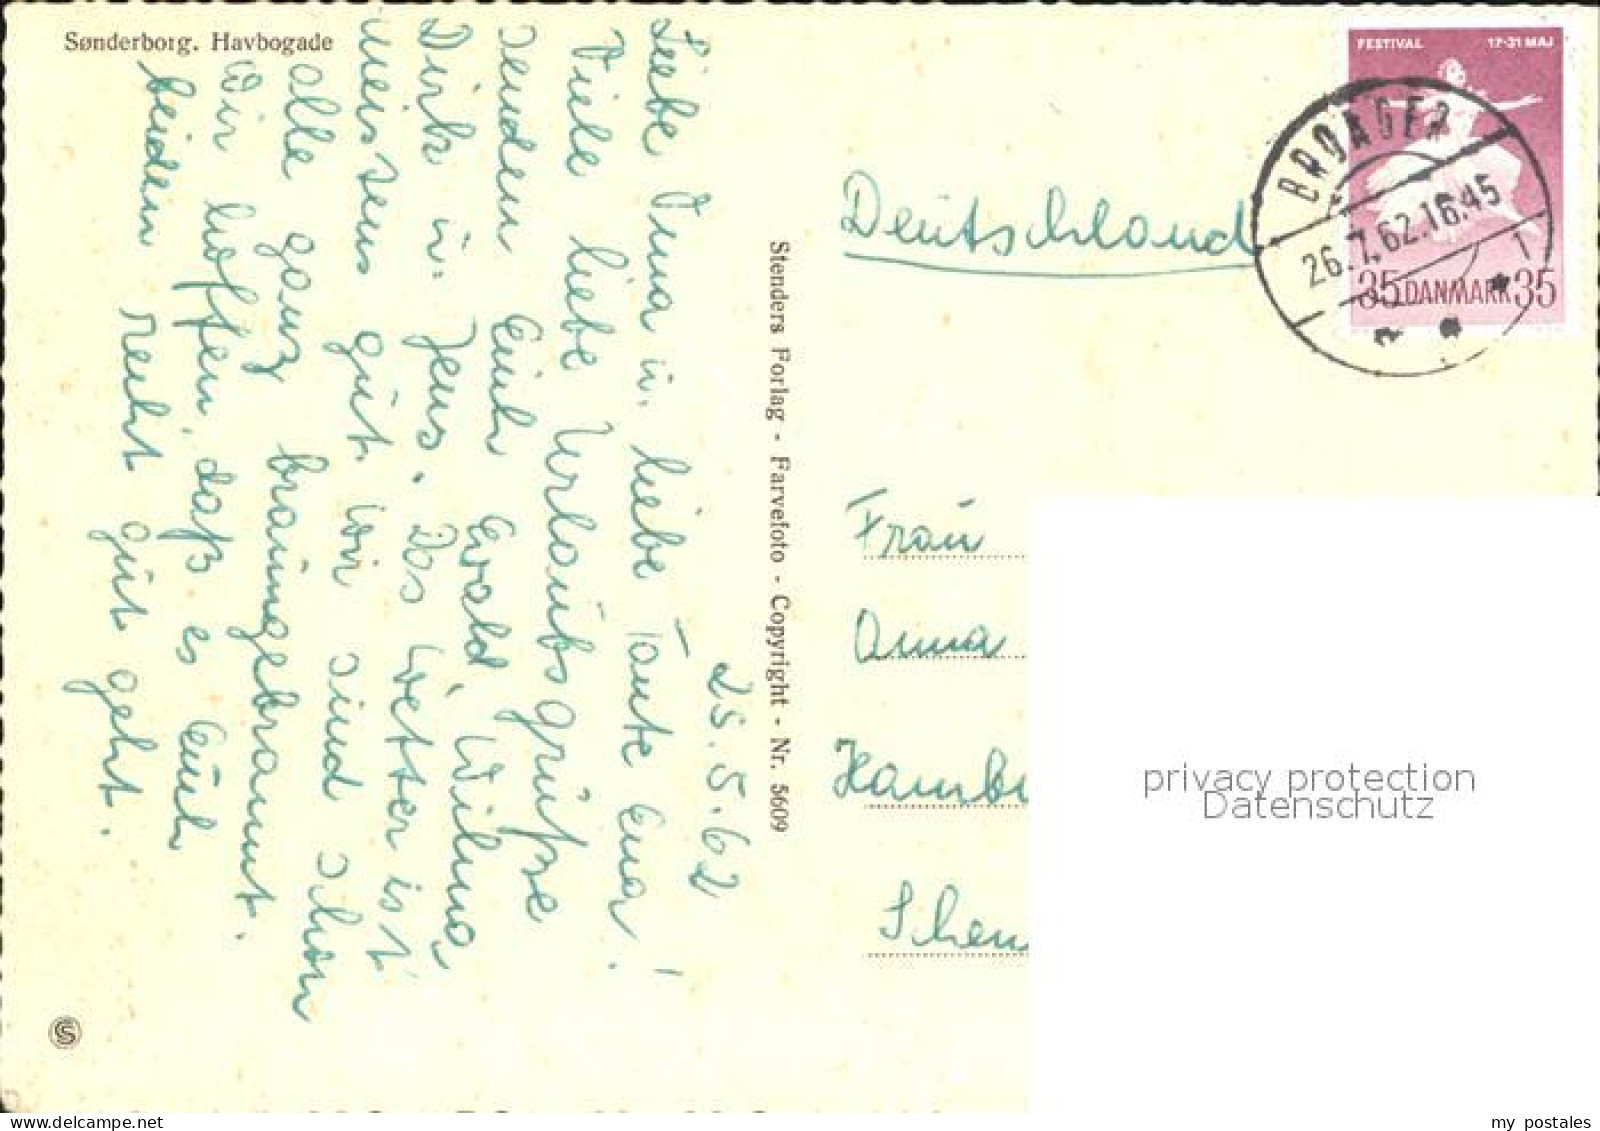 Sønderborg. Havbogade
25.5.62
Liebe Oma u. liebe Tante Ema!
Viele liebe Urlaubsgrüße
senden Euch Ewald, Wilma,
Dirk u. Jens. Das Wetter ist
meistens gut. Wir sind schon
alle ganz braungebrannt.
Wir hoffen, daß es Euch
beiden recht gut geht.
Stenders Forlag - Farvefoto - Copyright - Nr. 5609
FESTIVAL 17-31 MAJ
35 DANMARK 35
BROAGER
26.7.62.16.45
1
Deutschland
Frau
Anna
Hambu
privacy protection
Datenschutz
my postales